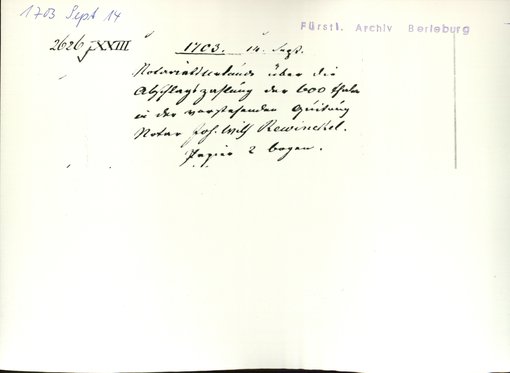 1703 Sept 14
Fürstl. Archiv Berleburg
2626 XXIII.
1703. 14. Sept.
Notariatsurkunde über die
Abschlagszahlung der 600 thaler
in der vorstehenden Quitung
Notar Joh. Wilh Rewinckel.
Papier 2 bogen.